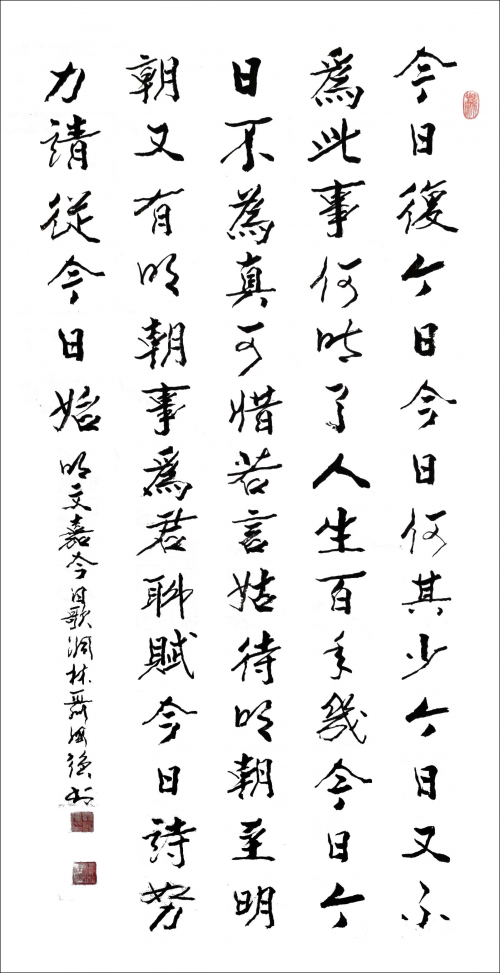 今日復今日今日何其少今日又不
爲此事何时了人生百年幾今日今
日不為真可惜若言姑待明朝至明
朝又有明朝事爲君聊賦今日詩努
力請從今日始
明文嘉今日歌林聶強书